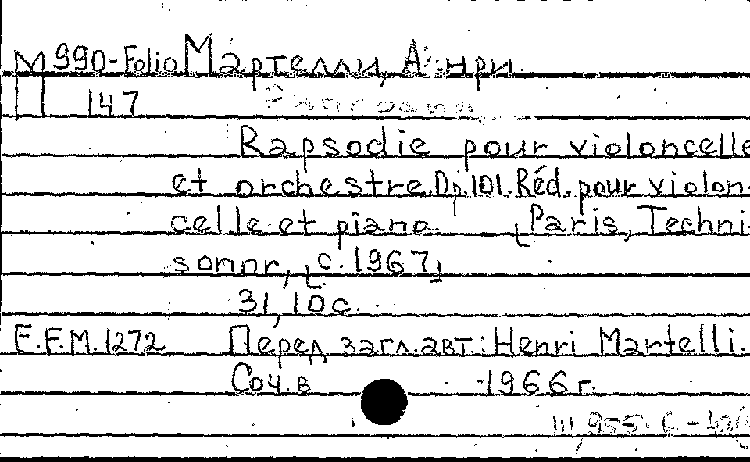 М 990-Folio Мартелли, Анри.
147
Rapsodie pour violoncelle
et orchestre. Op. 101. Réd. pour violon-
celle et piano. [Paris, Techni-
sonor, [c. 1967]
31, 10 с.
E.F.M. 1272 Перед загл. авт.: Henri Martelli.
Соч. в 1966 г.